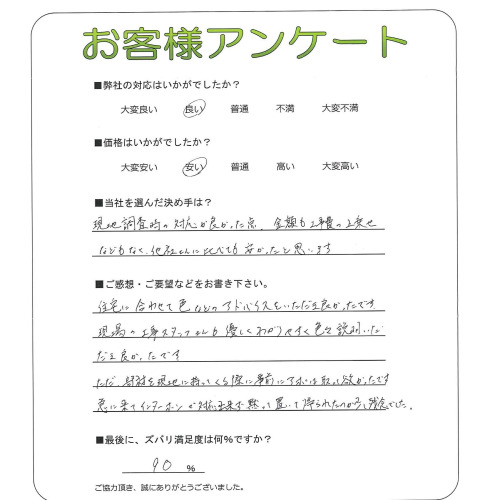 お客様アンケート
■弊社の対応はいかがでしたか？
大変良い 良い 普通 不満 大変不満
■価格はいかがでしたか？
大変安い 安い 普通 高い 大変高い
■当社を選んだ決め手は？
現地調査時の対応が良かった点、金額も工事費の上乗せ
などもなく、他社さんに比べても安かったと思います
■ご感想・ご要望などをお書き下さい。
住宅に合わせて色などのアドバイスをいただき良かったです。
現場の工事スタッフさんも優しくわかりやすく色々説明いた
だき良かったです
ただ、部材を現地に持ってくる際に事前にアポは取って欲しかったです
急に来てインターホンが対応出来ず黙って置いて帰られたのが少し残念でした。
■最後に、ズバリ満足度は何%ですか？
90 %
ご協力頂き、誠にありがとうございました。